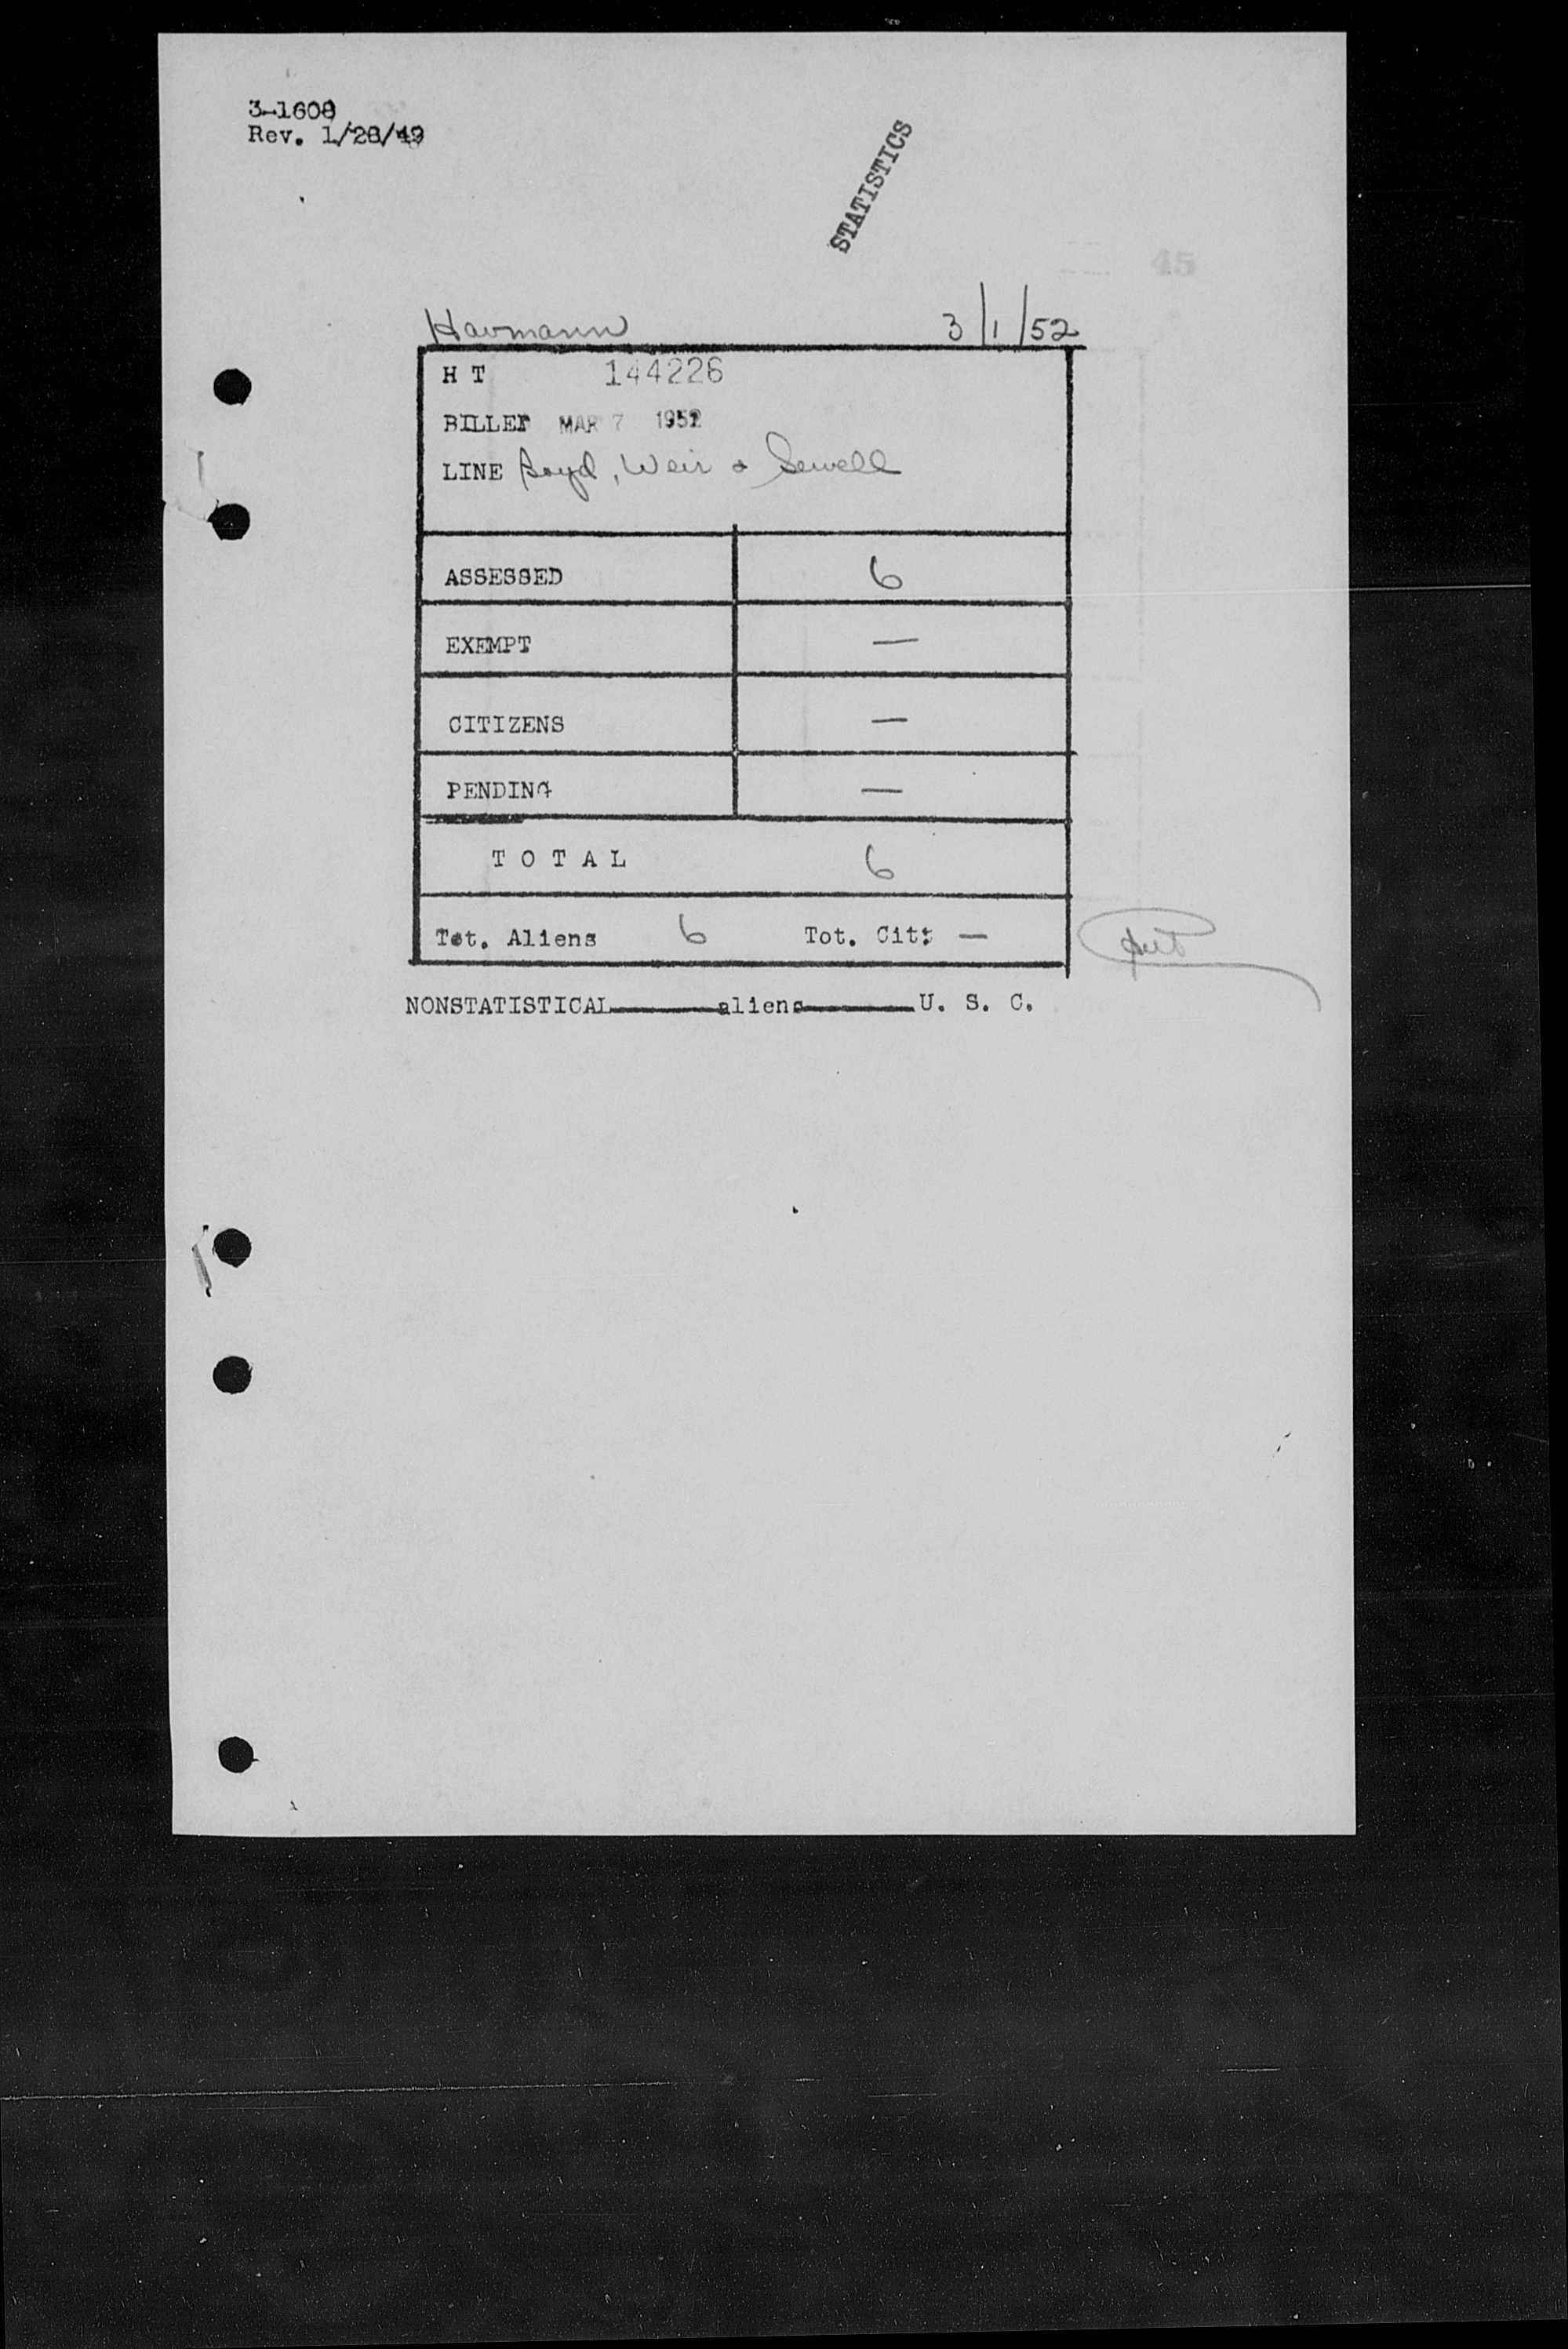 3-1608
Rev. 1/28/49
STATISTICS
45
Havmann 3/1/52
H T 144226
BILLET MAR 7 1952
LINE Boyd, Weir & Sewell
ASSESSED 6
EXEMPT —
CITIZENS —
PENDING —
T O T A L 6
Tot. Aliens 6 Tot. Cit: —
NONSTATISTICAL aliens U. S. C.